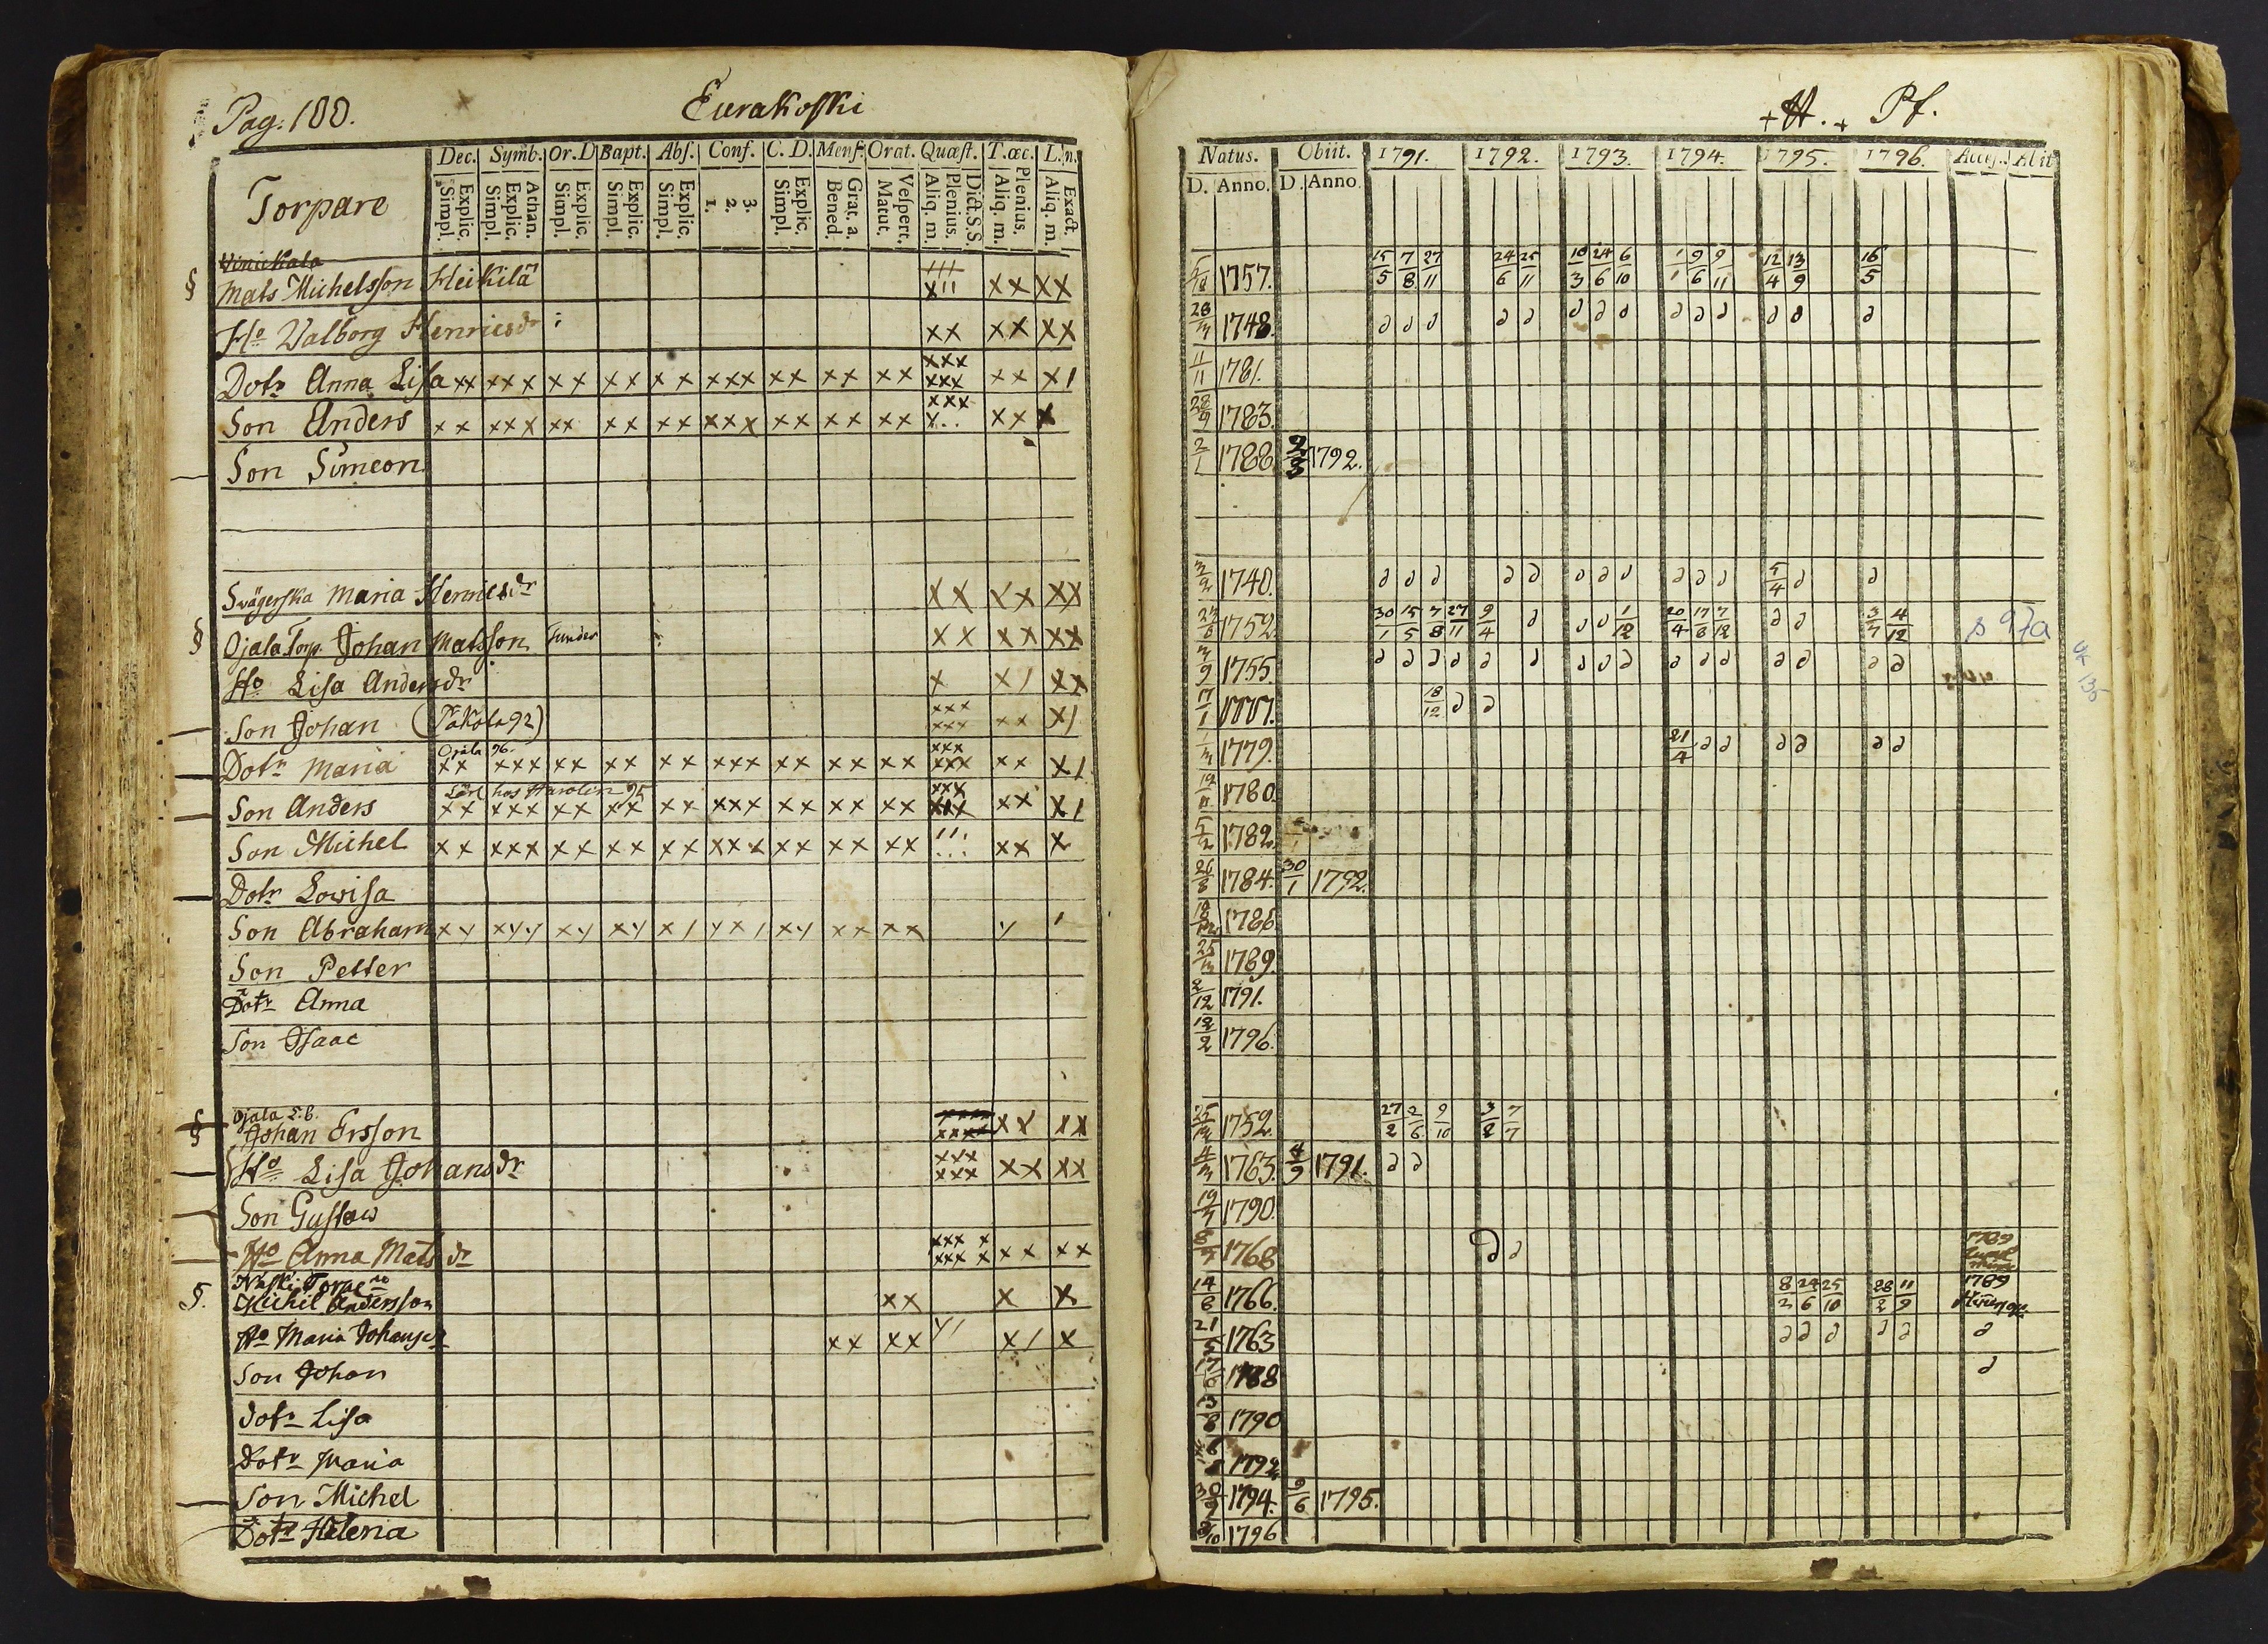 Pag: 188.
Eurakoski
Dec. Symb. Or. D Bapt. Abs. Conf. C. D. Mens. Orat. Quæst. T. œc. L. n.
Torpare
Explic. Simpl. Athan. Explic. Simpl. Explic. Simpl. Explic. Simpl. Explic. Simpl. 3. 2. 1. Explic. Simpl. Grat. a. Bened. Vespert. Matut. Dict. S.S. Plenius. Aliq. m. Plenius. Aliq. m. Exact. Aliq. m.
§ Mats Michelsson Heikilä
Ho Valborg Henricsdr
Dotr Anna Lisa xx xxx xx xx xx xxx xx xx xx xxx xxx xx x/
Son Anders xx xxx xx xx xx xxx xx xx xx xxx x.. xx x
Son Simeon
Svägerska Maria Henricsdr xx xx xx
§ Ojala Torp. Johan Matsson xx xx xx
Ho Lisa Andersdr x x/ xx
Son Johan (Pakola 92) xxx xxx xx x/
Ojala 96.
Dotr Maria xx xxx xx xx xx xxx xx xx xx xxx xxx xx x/
95
Son Anders xx xxx xx xx xx xxx xx xx xx xxx xxx xx x/
Son Michel xx xxx xx xx xx xxx xx xx xx xx x
Dotr Lovisa
Son Abraham
Son Petter
Dotr Anna
Son Isaac
Ojala
§ Johan Ersson xx xx
Ho Lisa Johansdr xxx xxx xx xx
Son Gustaw
Ho Anna Matsdr xxx x xxx x xx xx
§. Michel Andersson xx x x
Ho Maria Johansdr xx xx x/ x
Son Johan
Dotr Lisa
Dotr Maria
Son Michel
Dotr Helena
+ H. + Pf.
Natus. Obiit. 1791. 1792. 1793. 1794. 1795. 1796. Access. Abit
D. Anno. D. Anno.
1757. 15/5 7/8 27/11 24/6 25/11 10/3 24/6 6/10 1/1 9/6 9/11 12/4 13/9 16/5
28/3 1748.
11/11 1781.
28/9 1783.
2/1 1788. 1792.
3/2 1740. 5/4
1752. 30/1 15/5 7/8 27/11 9/4 1/12 20/4 17/8 7/12 3/7 4/12 s 97a
3/9 1755.
17/1 18/12
1/3 1779. 21/4
1780.
5/2 1782.
26/8 1784. 30/1 1792.
1786
25/3 1789.
2/12 1791.
12/2 1796.
1752. 27/2 2/6 9/10 3/2 7/7
4/3 1763. 4/9 1791.
19/7 1790.
1768 1789
14/8 1766. 8/2 24/6 25/10 28/2 11/9 1789
21/5 1763
1788
13/8 1790
1792
30/9 1794. 9/6 1795.
1796